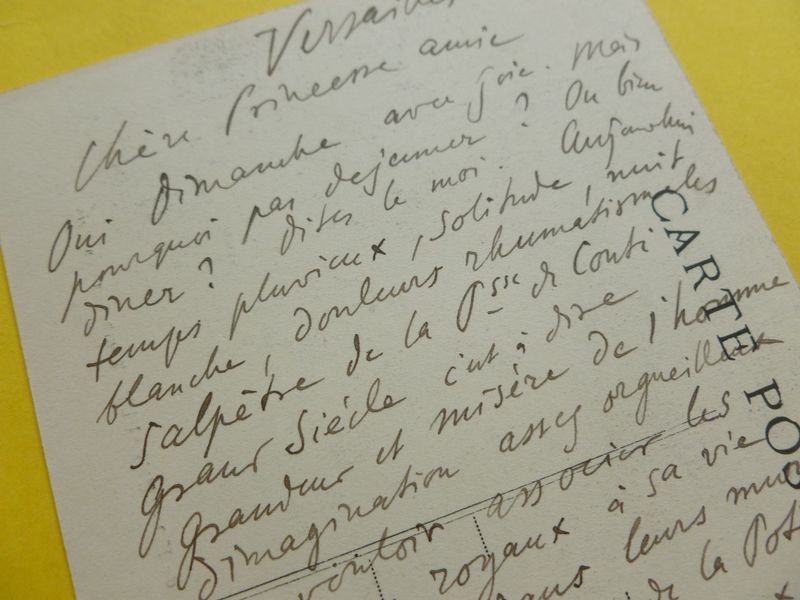 Versailles
Chère Princesse amie
Oui Dimanche avec joie. Mais
pourquoi pas dejeuner ? Ou bien
diner ? dites le moi. Aujourdhui
temps pluvieux, solitude, nuit
blanche, douleurs rhumatismales
Salpêtre de la Psse de Conti
Grand Siècle c'est à dire
Grandeur et misère de l'homme
D'imagination assez orgueilleux
vouloir associer les
royaux à sa vie
dans leurs murs
de la
CARTE PO